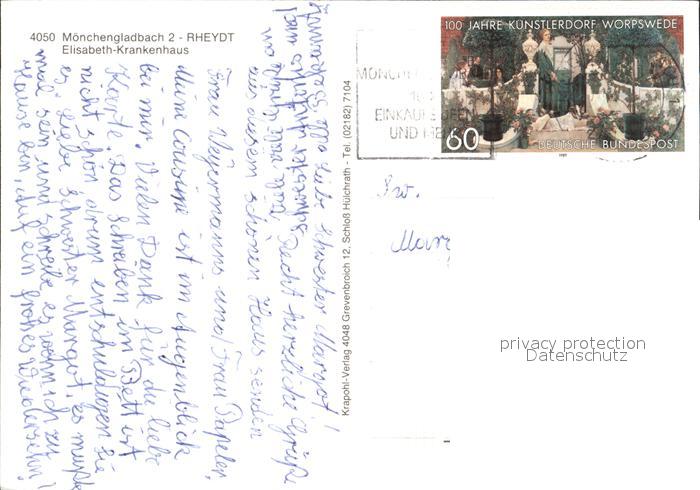 4050 Mönchengladbach 2 - RHEYDT
Elisabeth-Krankenhaus
liebe Schwester Margot!
Recht herzliche Grüße
aus diesem schönen Haus senden
Frau Weyermanns und Frau Papeler,
Meine Cousine ist im Augenblick
bei mir. Vielen Dank für die liebe
Karte. Das Schreiben im Bett ist
nicht schön drum entschuldigen Sie
es, liebe Schwester Margot, es mußte
mal sein und schreibe es wenn ich zu
Hause bin, auf ein großes Wiedersehn!
Krapohl-Verlag 4048 Grevenbroich 12, Schloß Hülchrath - Tel. (02182) 7104
100 JAHRE KÜNSTLERDORF WORPSWEDE
60
DEUTSCHE BUNDESPOST
1989
MÖNCHEN
EINKAUFE
UND
Sw.
Marg
privacy protection
Datenschutz